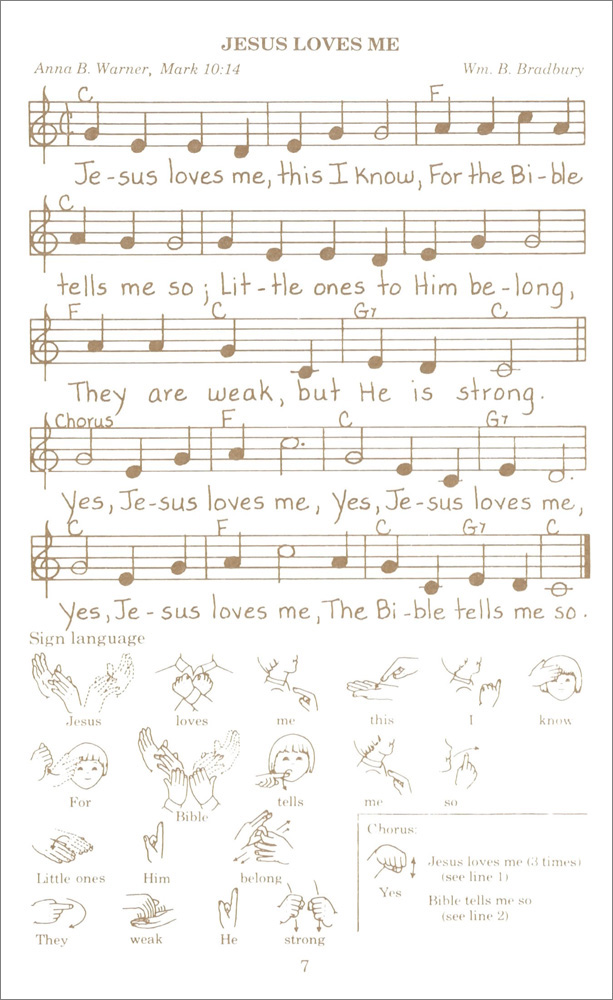 JESUS LOVES ME
Anna B. Warner, Mark 10:14 Wm. B. Bradbury
C F
Je-sus loves me, this I know, For the Bi-ble
C
tells me so; Lit-tle ones to Him be-long,
F C G7 C
They are weak, but He is strong.
Chorus F C G7
Yes, Je-sus loves me, Yes, Je-sus loves me,
C F C G7 C
Yes, Je-sus loves me, The Bi-ble tells me so.
Sign language
Jesus loves me this I know
For Bible tells me so
Little ones Him belong
They weak He strong
Chorus:
Yes
Jesus loves me (3 times)
(see line 1)
Bible tells me so
(see line 2)
7